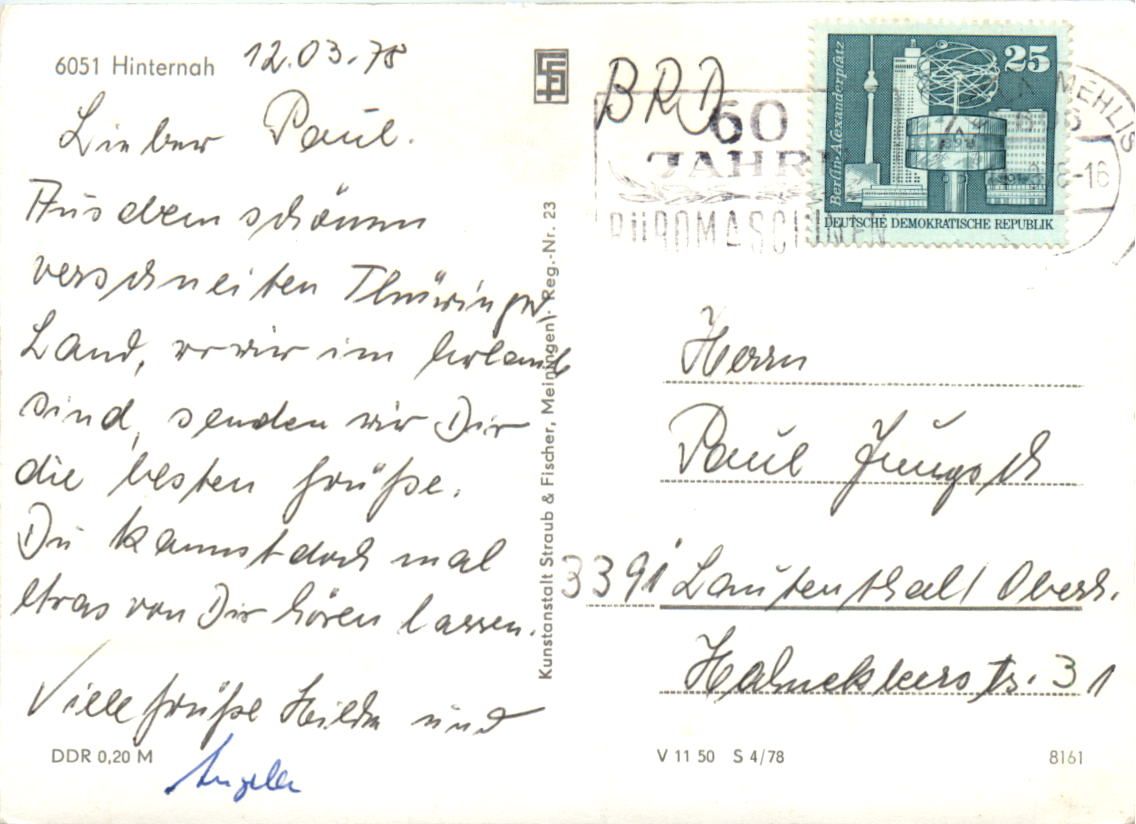 6051 Hinternah 12.03.78
Lieber Paul.
Aus dem schönen
verschneiten Thüringer
Land, wo wir im Urlaub
sind, senden wir Dir
die besten Grüße.
Du kannst doch mal
etwas von Dir hören lassen.
Viele Grüße Hilda und
Angela
DDR 0,20 M
Kunstanstalt Straub & Fischer, Meiningen · Reg.-Nr. 23
BRD
60
JAHRE
BÜROMASCHINEN
MEHLIS
-16
Berlin-Alexanderplatz
25
DEUTSCHE DEMOKRATISCHE REPUBLIK
Herrn
Paul
3391 Lautenthal / Oberh.
31
V 11 50 S 4/78
8161